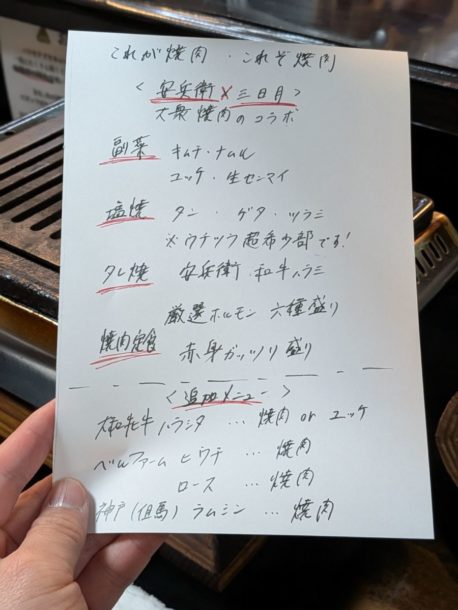 これが焼肉・これぞ焼肉
＜安兵衛×三日月＞
大衆焼肉のコラボ
副菜 キムチ・ナムル
ユッケ・生センマイ
塩焼 タン・ゲタ・ツラミ
※ウチツラ超希少部です!
タレ焼 安兵衛・和牛ハラミ
厳選ホルモン 六種盛り
焼肉定食 赤身ガッツリ盛り
＜追加メニュー＞
大和牝牛ハラシタ … 焼肉 or ユッケ
ベルファーム ヒウチ … 焼肉
ロース … 焼肉
神戸(但馬)ラムシン … 焼肉